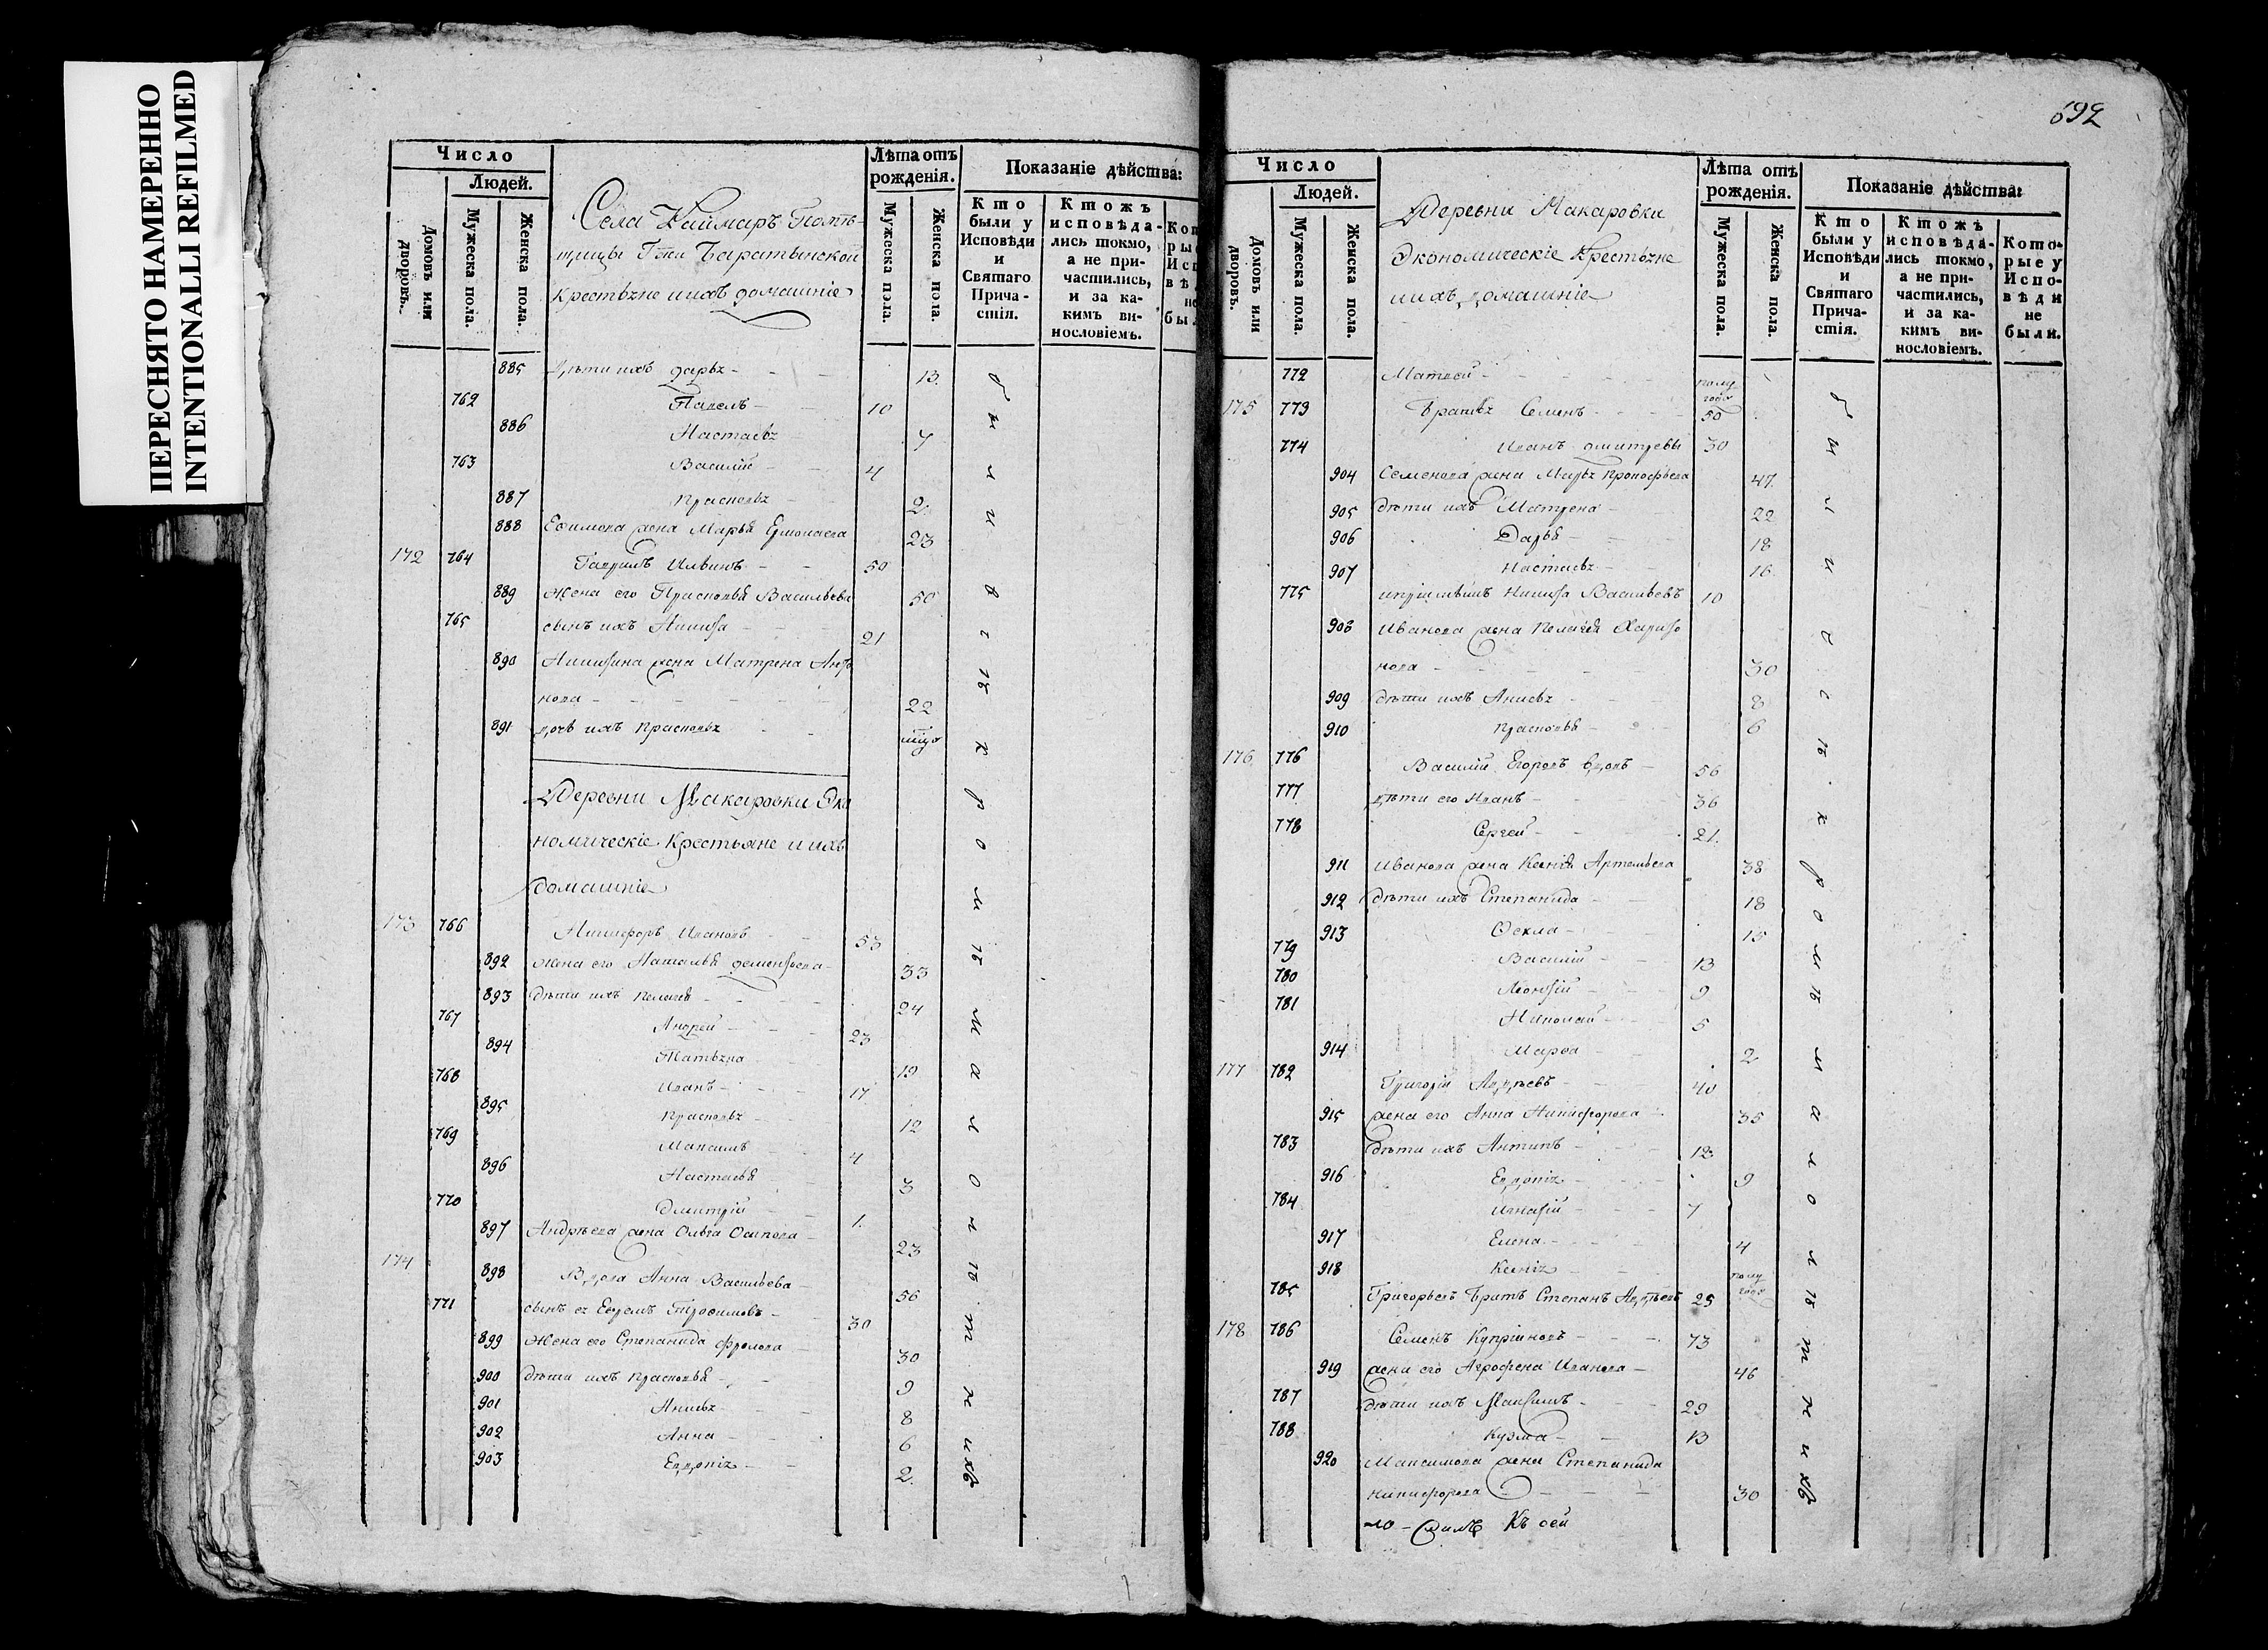 ПЕРЕСНЯТО НАМЕРЕННО
INTENTIONALLI REFILMED
Число
Людей.
Домовъ или дворовъ.
Мужеска пола.
Женска пола.
Села Каймаръ Помѣ-
щицы Гжи Баратынской
крестьяне и ихъ домашніе
Лѣта отъ рожденія.
Мужеска пола.
Женска пола.
Показаніе дѣйства:
Кто были у Исповѣди и Святаго Прича-стія.
Ктожъ исповѣда-лись токмо, а не при-частились, и за ка-кимъ ви-нословіемъ.
885 дѣти ихъ дарья 13
762 Павелъ 10
886 Настасья 7
763 Василій 4
887 Прасковья 2
888 Ефимова жена Марья 23
172 764 Гаврилъ Ильинъ 50
889 Жена его Прасковья Васильева 50
765 сынъ ихъ Никита 21
890 Никитина жена Матрена
нова 22
891 дочь ихъ Прасковья
Деревни Макаровки Эко
номическіе Крестьяне и ихъ
домашніе
173 766 Никифоръ Ивановъ 53
892 жена его Наталья 33
893 дѣти ихъ Пелагея 24
767 Андрей 23
894 Татьяна 19
768 Иванъ 17
895 Прасковья 12
769 Максимъ 4
896 Настасья 3
770 Дмитрій 1
897 Андрѣева жена Ольга Осипова 23
174 898 Вдова Анна Васильева 56
771 сынъ ея Ефремъ Трофимовъ 30
899 Жена его Степанида Фролова 30
900 дѣти ихъ Прасковья 9
901 Анисья 8
902 Анна 6
903 Евдокія 2
были всѣ кромѣ малолѣтнихъ
692
Число
Людей.
Домовъ или дворовъ.
Мужеска пола.
Женска пола.
Деревни Макаровки
Экономическіе Крестьяне
и ихъ домашніе
Лѣта отъ рожденія.
Мужеска пола.
Женска пола.
Показаніе дѣйства:
Кто были у Исповѣди и Святаго Прича-стія.
Ктожъ исповѣда-лись токмо, а не при-частились, и за ка-кимъ ви-нословіемъ.
Кото-рые у Испо-вѣди не были.
772 Матвей полу года
175 773 Братья Семенъ 50
774 Иванъ дмитревы 30
904 Семенова жена Марья Прокофьева 47
905 дѣти ихъ Матрена 22
906 Дарья 18
907 Настасья 16
775 Никита Васильевъ 10
908 Иванова жена Пелагея Харито
нова 30
909 дѣти ихъ Анисья 8
910 Прасковья 6
176 776 Василій Егоровъ вдовъ 56
777 дѣти его Иванъ 36
778 Сергей 21
911 Иванова жена Ксенія Артемьева 38
912 дѣти ихъ Степанида 18
913 Фекла 15
779 Василій 13
780 Леонтій 9
781 Николай 5
914 Марфа 2
177 782 Григорій Авдѣевъ 40
915 жена его Анна Никифорова 35
783 дѣти ихъ Антипъ 12
916 Евдокія 9
784 Игнатій 7
917 Елена 4
918 Ксенія полу года
785 Григорьевъ братъ Степанъ Авдѣевъ 25
178 786 Семенъ Купріяновъ 73
919 жена его Агрофена Иванова 46
787 дѣти ихъ Максимъ 29
788 Кузма 13
920 Максимова жена Степанида
Никифорова 30
Къ сей
были всѣ кромѣ малолѣтнихъ